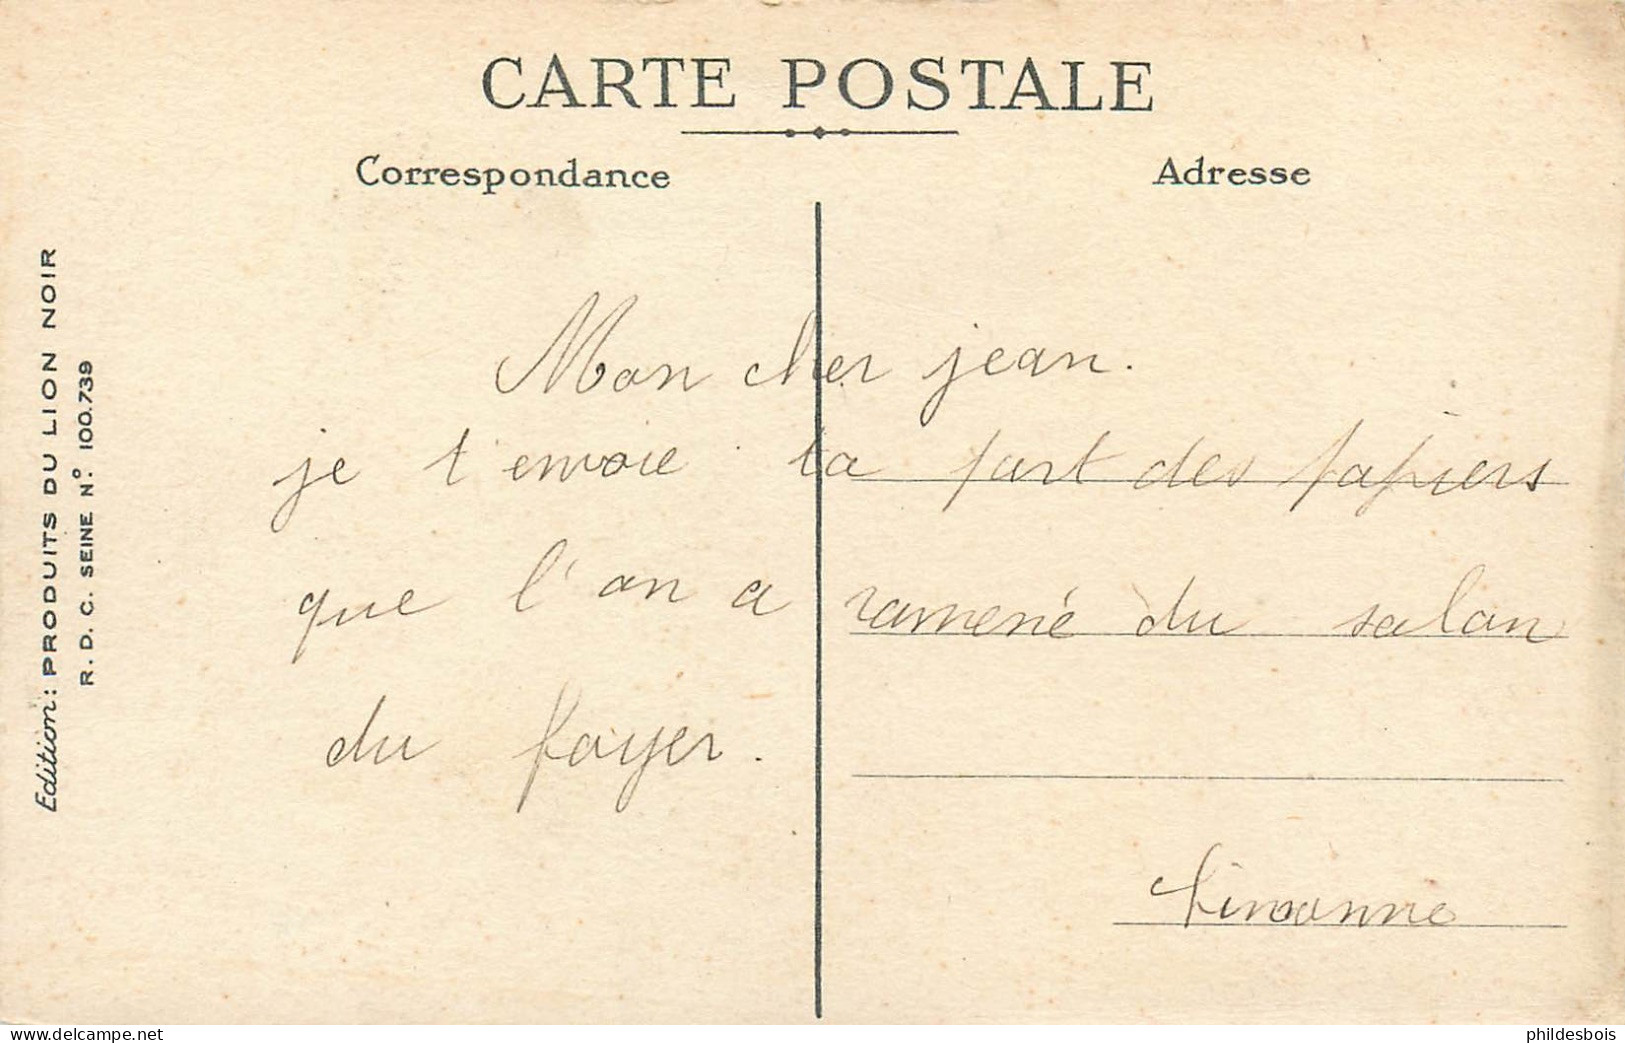 CARTE POSTALE
Correspondance
Adresse
Edition: PRODUITS DU LION NOIR
R. D. C. SEINE N° 100.739
Mon cher jean.
je t'envoie ta part des papiers
que l'on a ramené du salon
du foyer.
delcampe.net
phildesbois